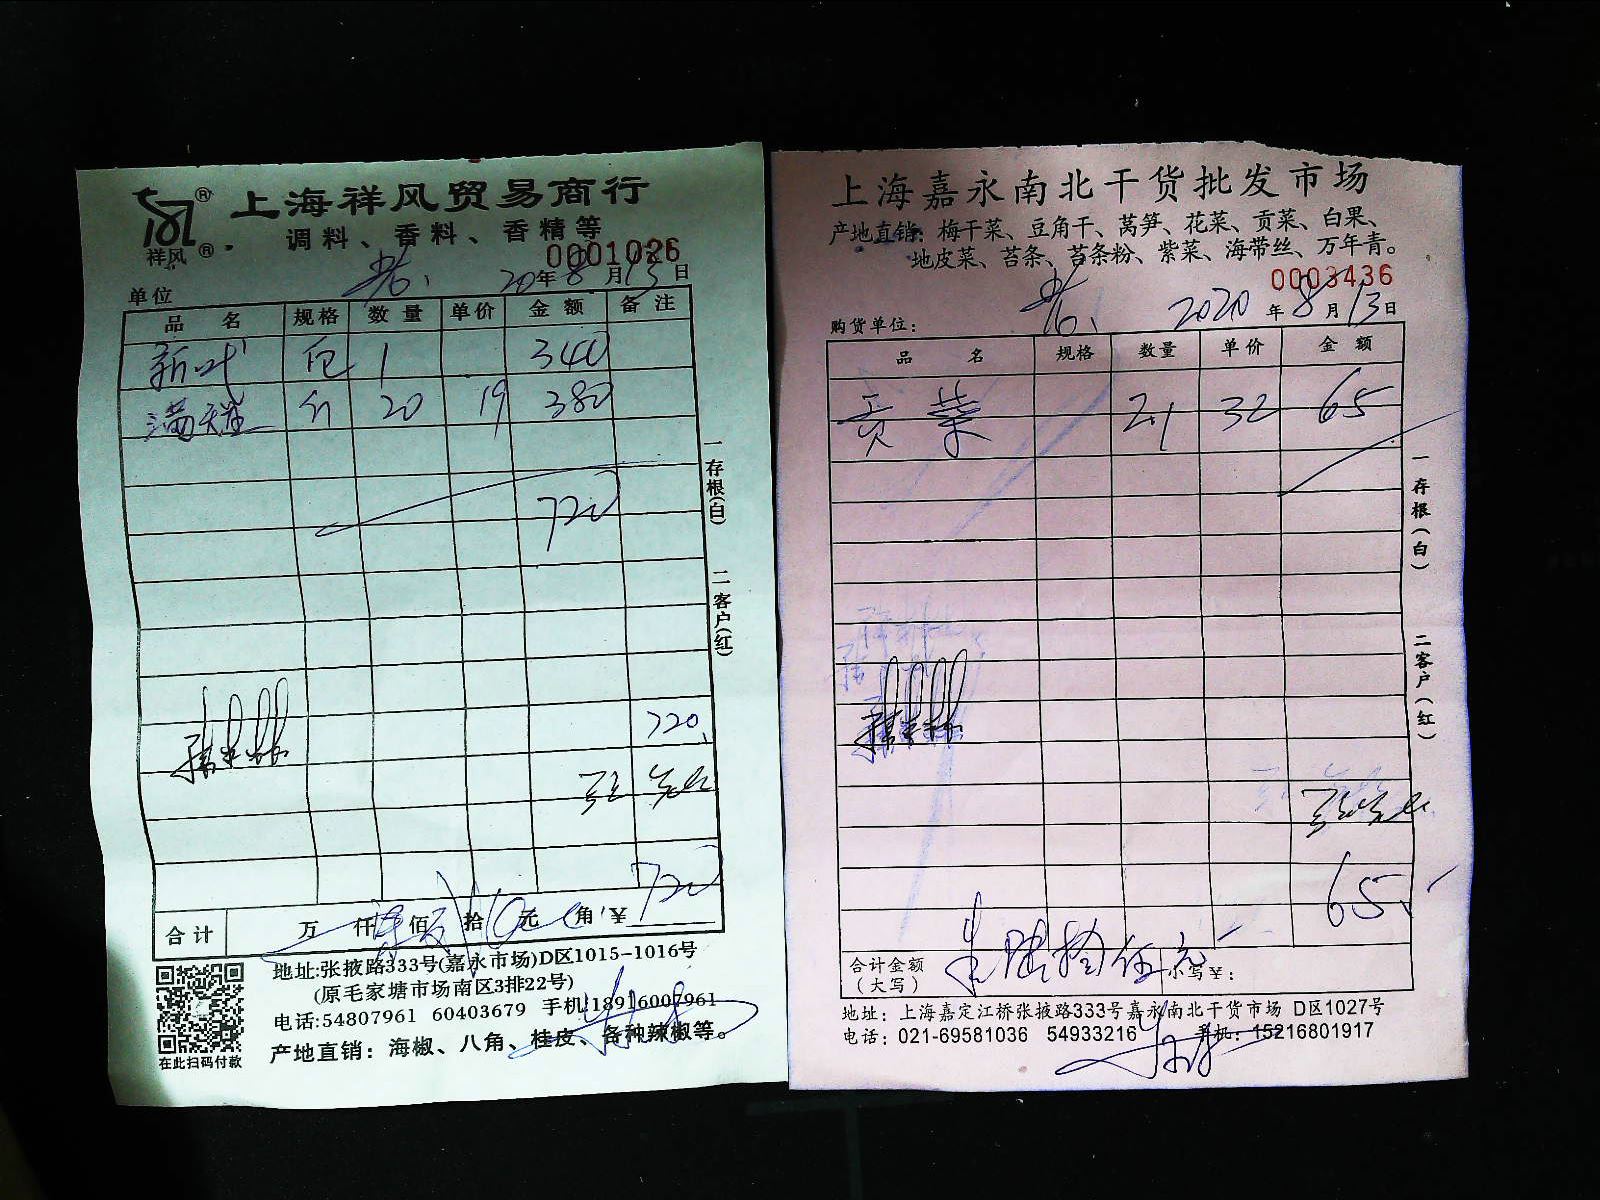 祥风
®
®
上海祥风贸易商行
调料、香料、香精等
0001026
单位 20年8月13日
品名 规格 数量 单价 金额 备注
新叶 包 1 340
满天星 斤 20 19 380
720
一存根(白)
二客户(红)
720
720
合计 万 仟 佰 拾 元 角 ¥
地址:张掖路333号(嘉永市场)D区1015-1016号
(原毛家塘市场南区3排22号)
电话:54807961 60403679 手机:18916007961
产地直销：海椒、八角、桂皮、各种辣椒等。
在此扫码付款
上海嘉永南北干货批发市场
产地直销：梅干菜、豆角干、莴笋、花菜、贡菜、白果、
地皮菜、苔条、苔条粉、紫菜、海带丝、万年青。
0003436
购货单位： 2020年8月13日
品名 规格 数量 单价 金额
贡菜 2.1 32 65
一存根（白）
二客户（红）
65
合计金额（大写） 陆拾伍元 小写¥：
地址：上海嘉定江桥张掖路333号嘉永南北干货市场 D区1027号
电话：021-69581036 54933216 手机：15216801917